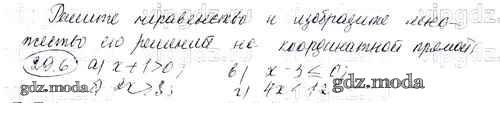 Решите неравенство и изобразите множество его решений на координатной прямой:
29.6 а) x + 1 > 0; в) x - 3 ≤ 0;
2x > 3; г) 4x < 12
gdz.moda gdz.moda gdz.moda